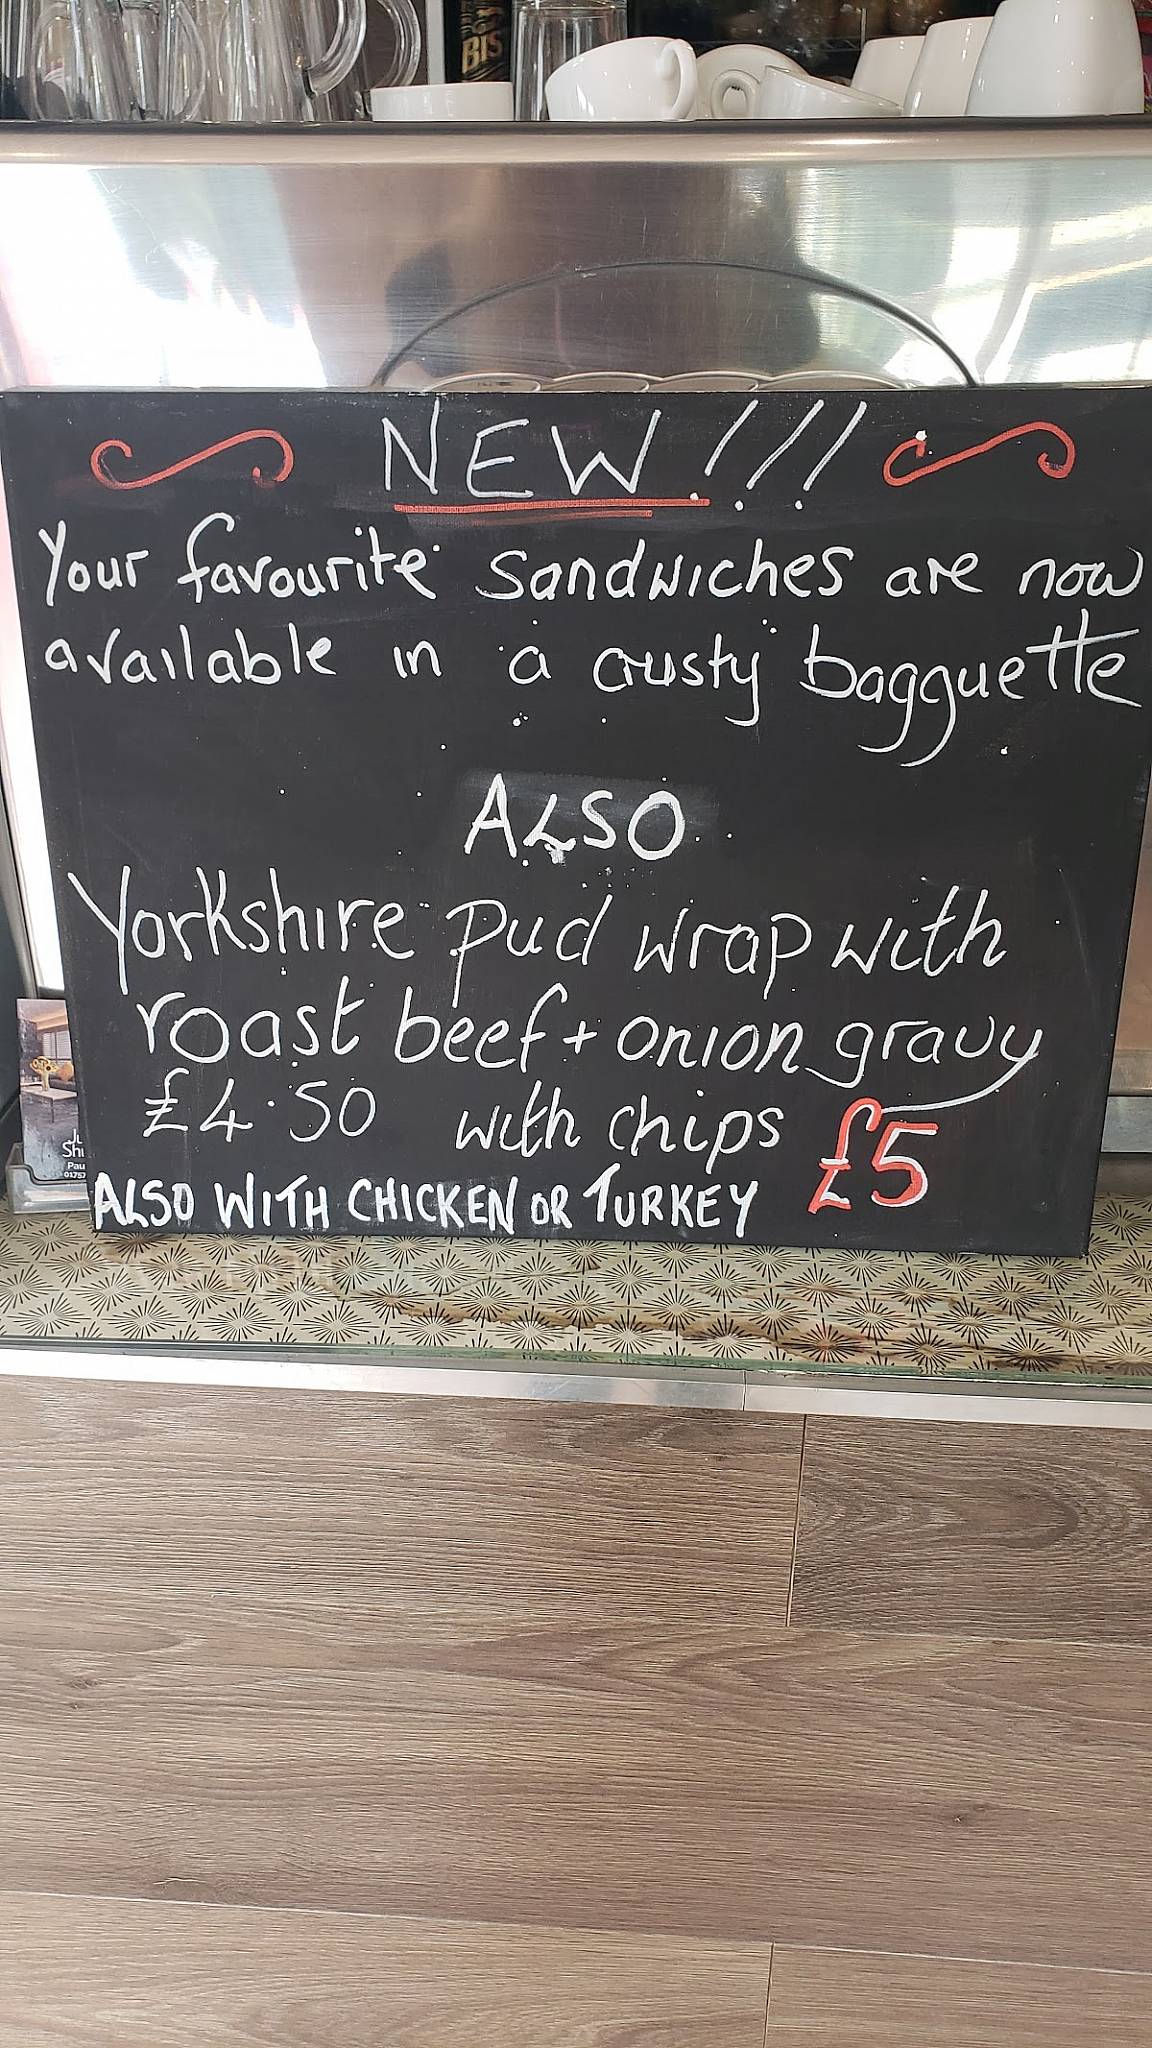 BIS
NEW!!!
Your favourite sandwiches are now
available in a crusty bagguette
ALSO
Yorkshire pud wrap with
roast beef + onion gravy
£4.50 with chips £5
ALSO WITH CHICKEN OR TURKEY
Shi
Pau
0175